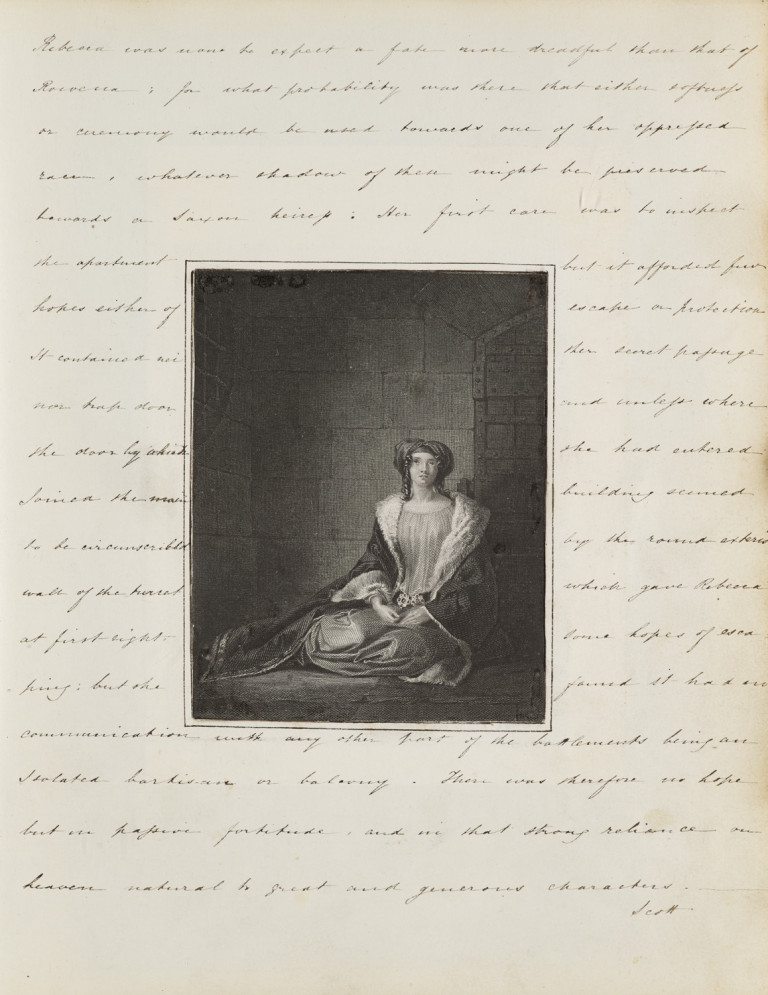 Rebecca was now to expect a fate more dreadful than that of
Rowena; for what probability was there that either softness
or ceremony would be used towards one of her oppressed
race, whatever shadow of them might be preserved
towards a Saxon heiress: Her first care was to inspect
the apartment but it afforded few
hopes either of escape or protection
It contained nei ther secret passage
nor trap door and unless where
the door by which she had entered
Joined the main building seemed
to be circumscribed by the round exterior
wall of the turret which gave Rebecca
at first sight some hopes of esca-
ping; but she found it had no
communication with any other part of the battlements being an
Isolated bartisan or balcony. There was therefore no hope
but in passive fortitude, and in that strong reliance on
heaven natural to great and generous characters.
Scott